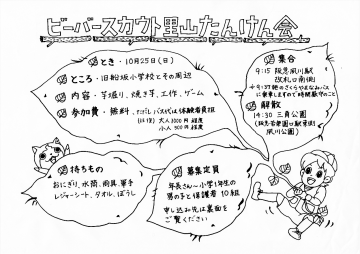 ビーバースカウト里山たんけん会
とき・10月25日(日)
ところ・旧船坂小学校とその周辺
内容・芋堀り、焼き芋、工作、ゲーム
参加費・無料、ただしバス代は体験者負担
(往復)大人1000円程度
小人500円程度
集合
9:15 阪急夙川駅
改札口南側
9:37発のさくらやまなみバス
に乗車しますので時間厳守のこと
解散
14:30 三角公園
(阪急苦楽園口駅東側
夙川公園)
持ちもの
おにぎり、水筒、雨具、軍手
レジャーシート、タオル、ぼうし
募集定員
年長さん〜小学1年生の
男の子と保護者 10組
申し込み先は裏面を
ご覧ください